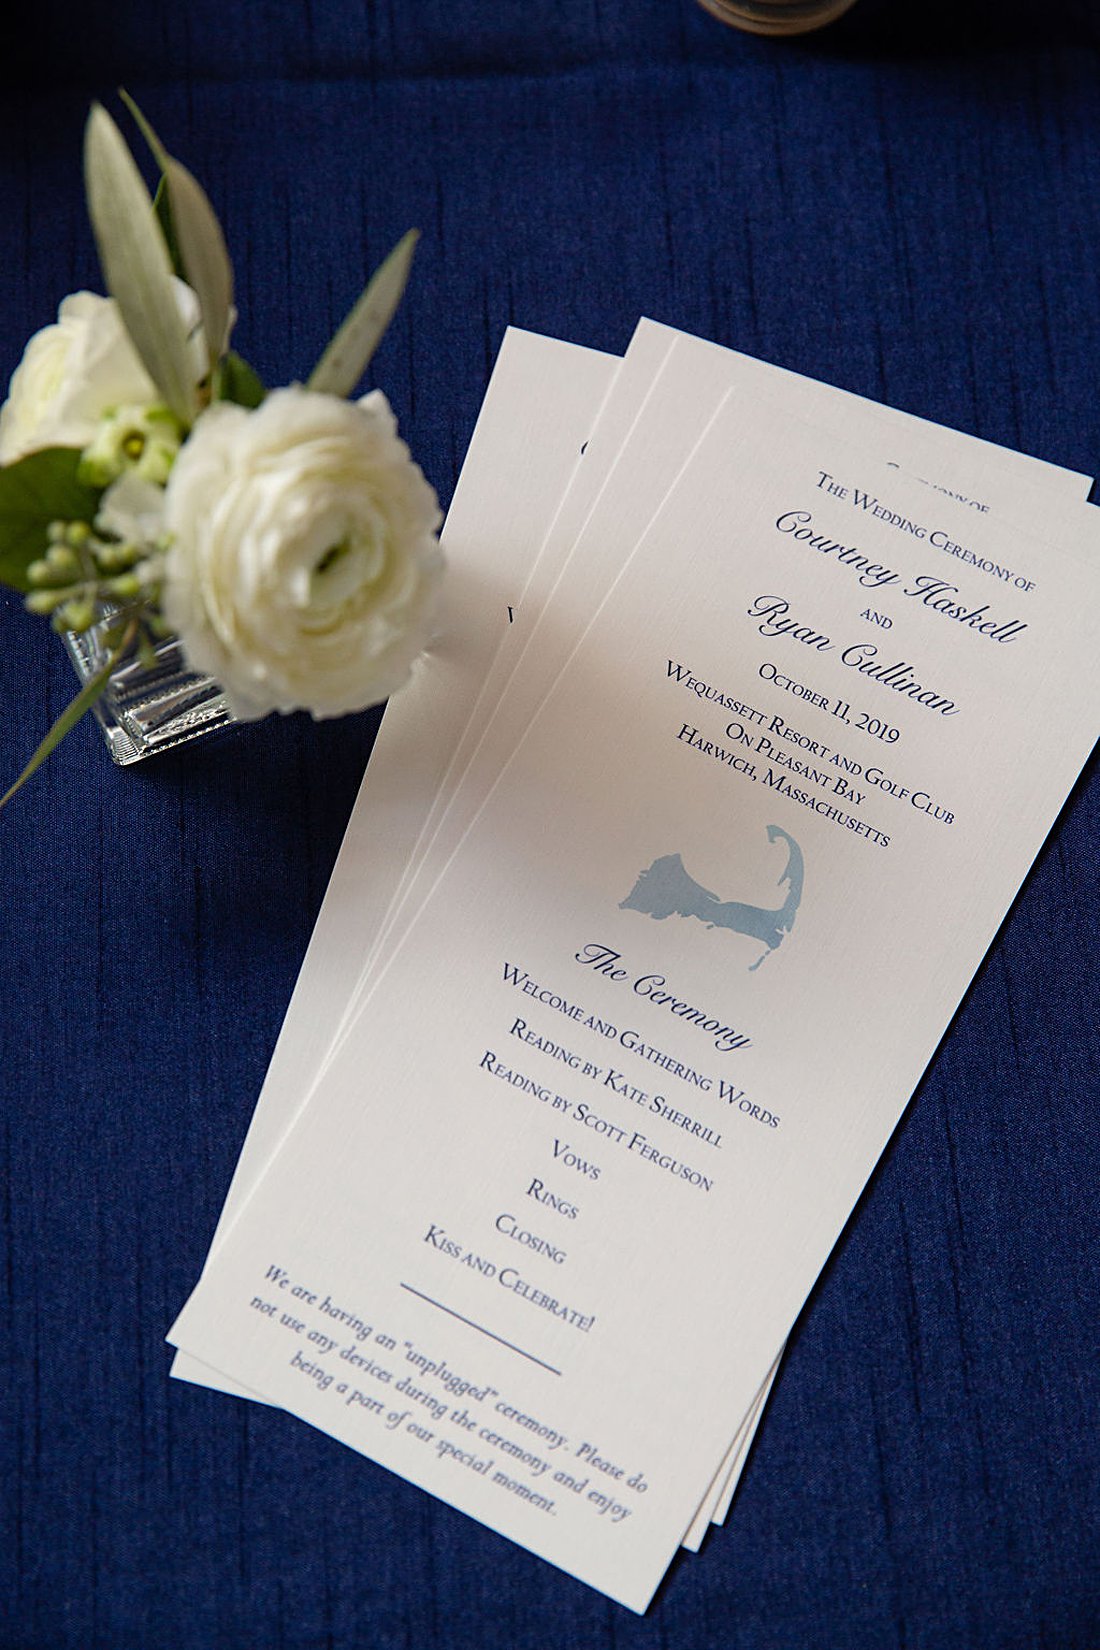 The Wedding Ceremony of
Courtney Haskell
and
Ryan Cullinan
October 11, 2019
Wequassett Resort and Golf Club
On Pleasant Bay
Harwich, Massachusetts
The Ceremony
Welcome and Gathering Words
Reading by Kate Sherrill
Reading by Scott Ferguson
Vows
Rings
Closing
Kiss and Celebrate!
We are having an "unplugged" ceremony. Please do
not use any devices during the ceremony and enjoy
being a part of our special moment.